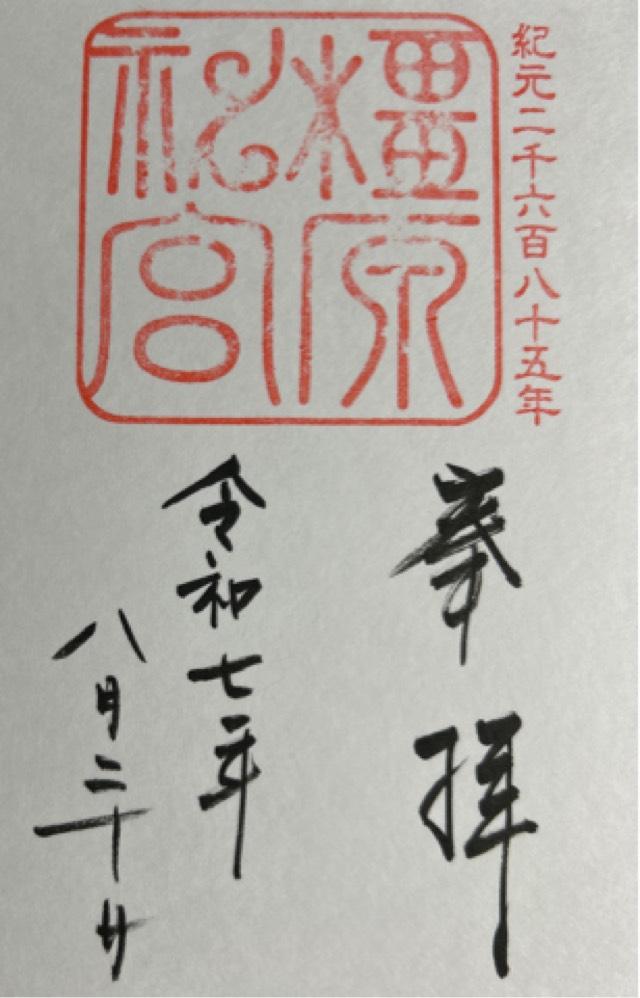 紀元二千六百八十五年
橿原
神宮
奉拝
令和七年
八月二十日